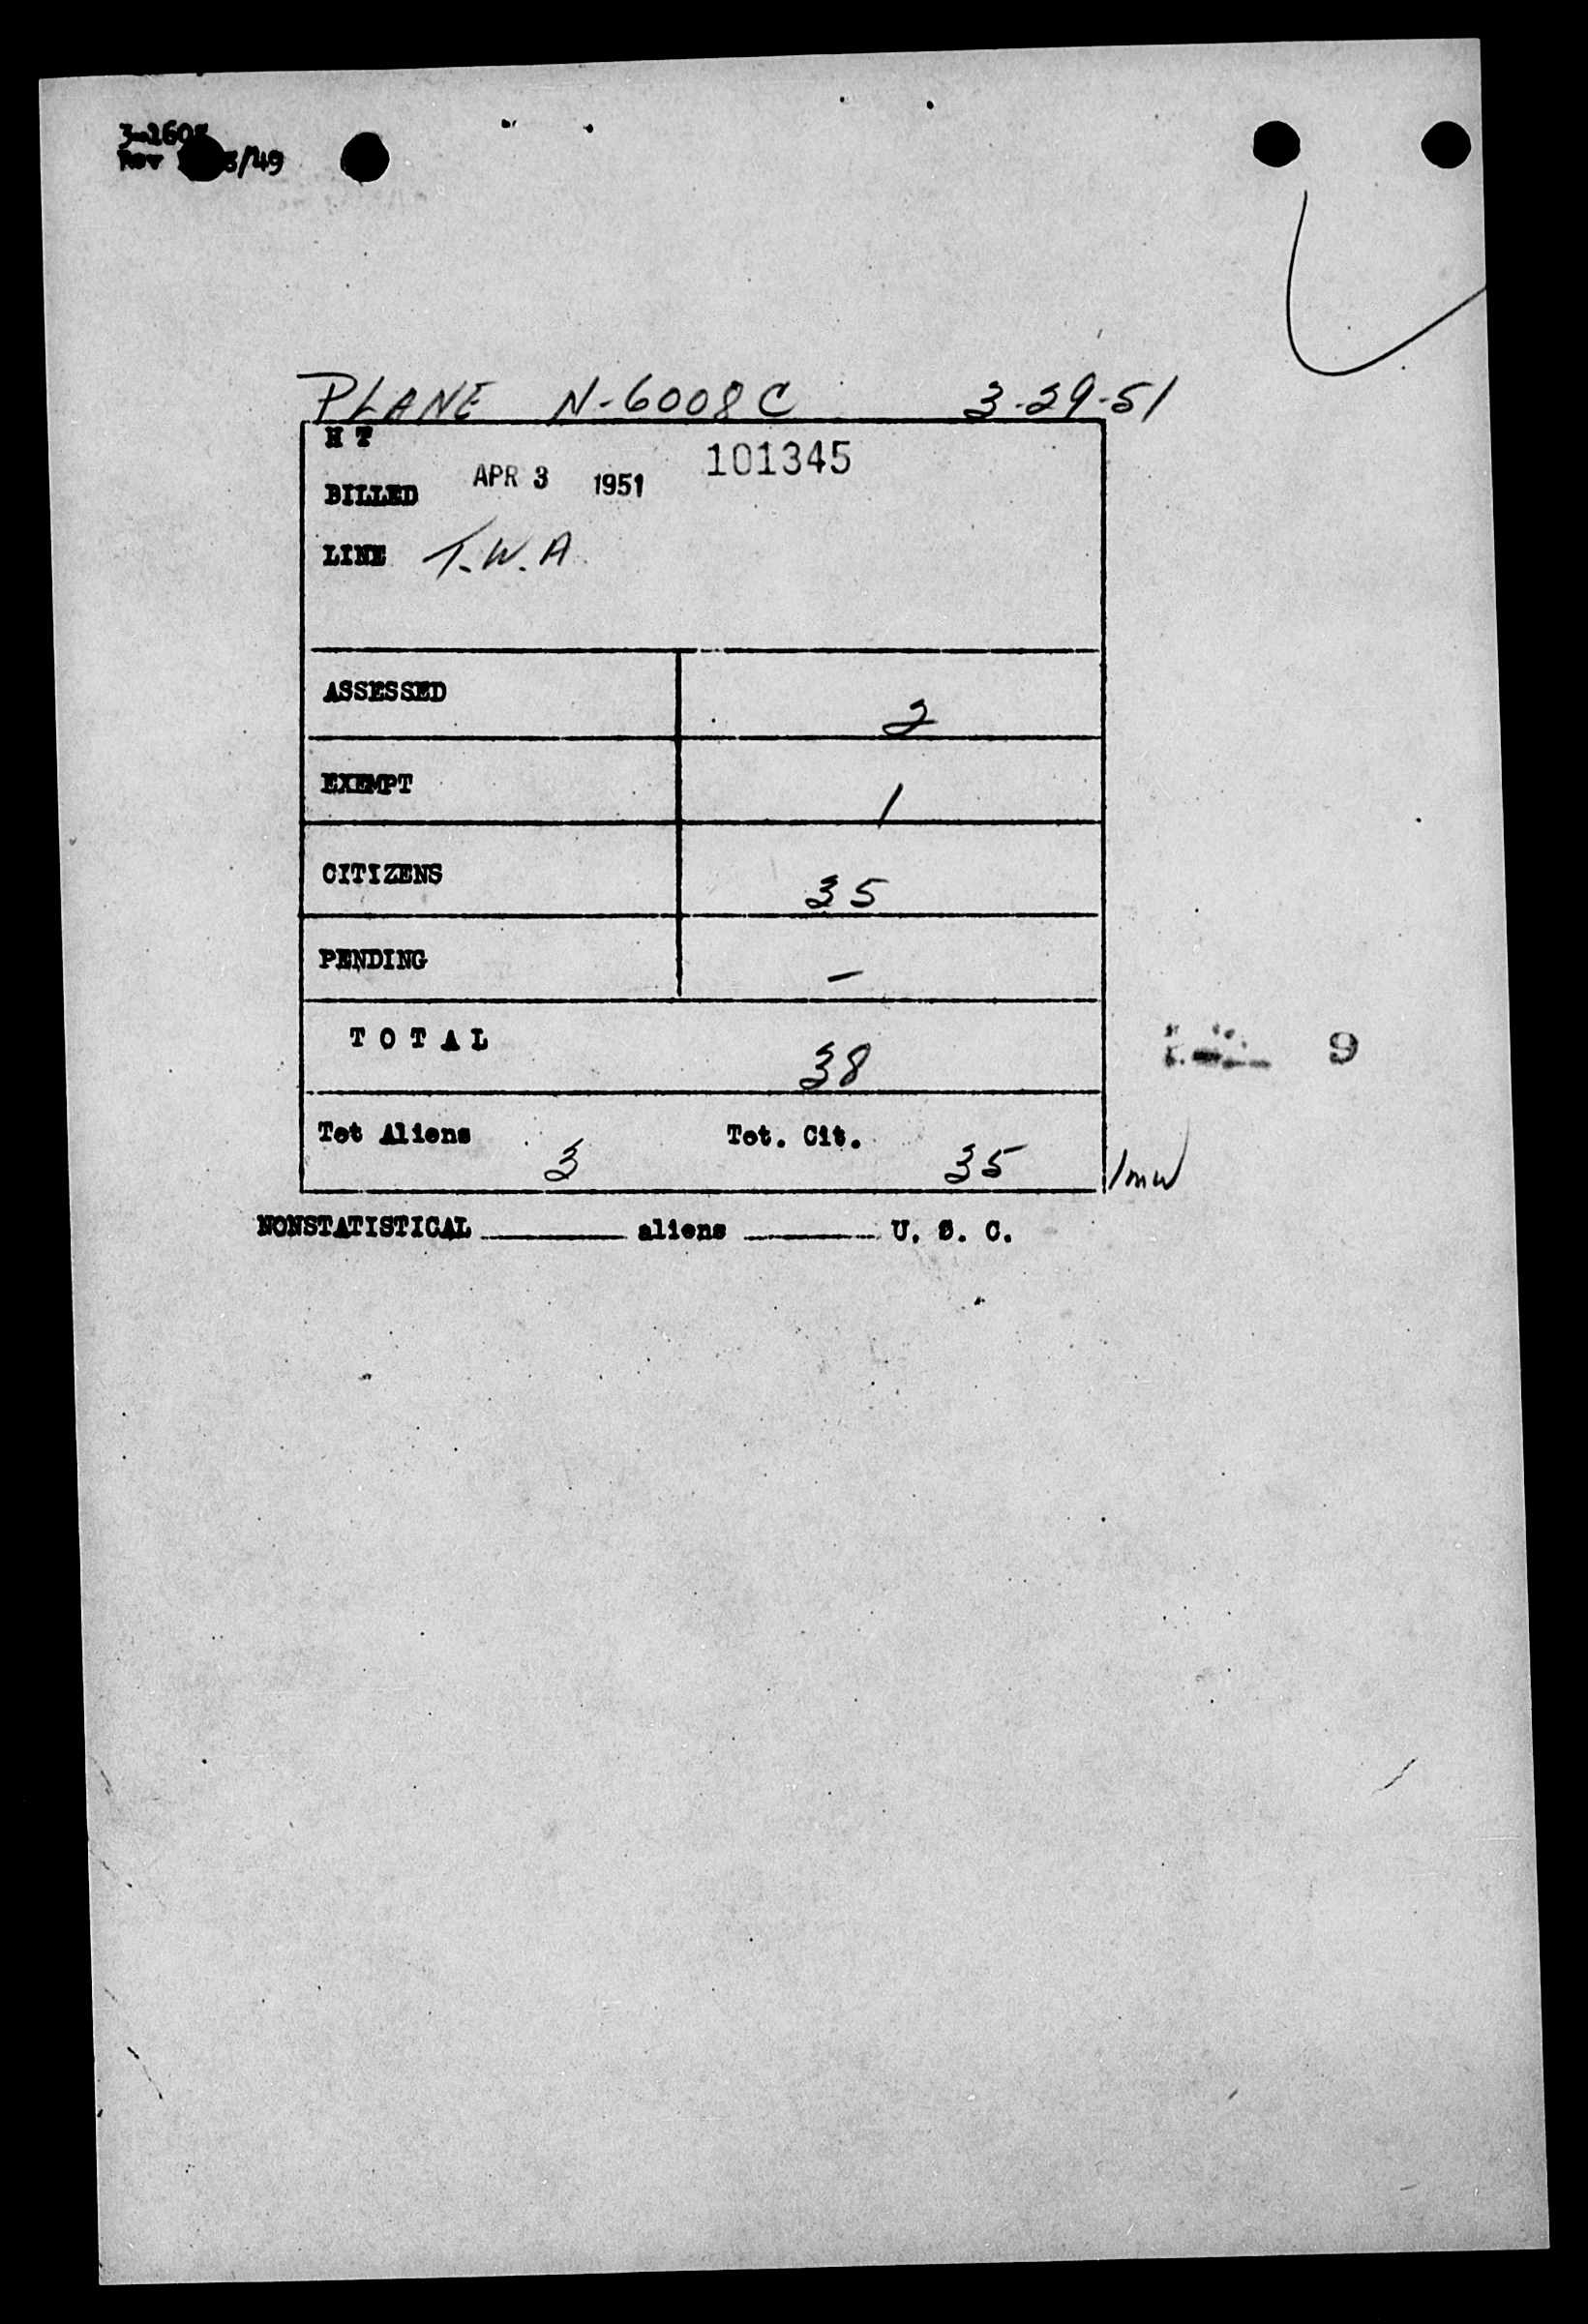 3-1603
Rev 3/49
PLANE N-6008C 3-29-51
H T
BILLED APR 3 1951 101345
LINE T.W.A.
ASSESSED 2
EXEMPT 1
CITIZENS 35
PENDING -
T O T A L 38
9
Tot Aliens 3 Tot. Cit. 35
NONSTATISTICAL ______ aliens ______ U. S. C.